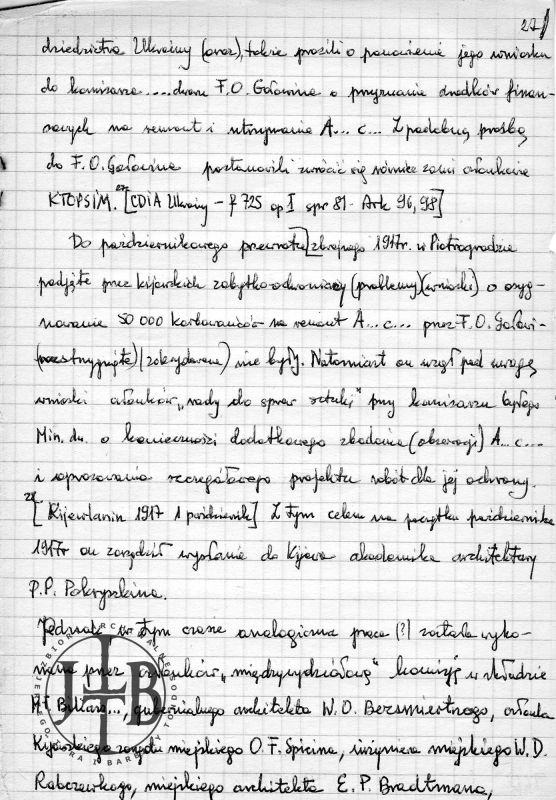 27
dziedzictwa Ukrainy (oraz), także prosili o ponowienie jego wniosku
do komisarza ....dworu F.O. Gołowina o przyznanie środków finan-
sowych na remont i utrzymanie A... c... Z podobną prośbą
do F.O. Gołowina postanowili zwrócić się również sami członkowie
KTOPSiM. 27 [CDIA Ukrainy – f 725 op I spr 81 - Ark 96, 98]
Do październikowego przewrotu] zbrojnego 1917r. w Piotrogrodzie
podjęte przez kijowskich zabytko-ochroniarzy (problemy) (wnioski) o asyg-
nowanie 50 000 karbowańców na remont A... c... przez F.O. Gołowi-
(rozstrzygnięte) (zdecydowane) nie były. Natomiast on wziął pod uwagę
wnioski członków „rady do spraw sztuki" przy komisarzu byłego
Min. dw. o konieczności dodatkowego zbadania (obserwacji) A... c....
i opracowania szczegółowego projektu robót dla jej ochrony.
28 [Kijewlanin 1917 1 październik] Z tym celem na początku października
1917r on zarządził wysłanie do Kijowa akademika architektury
P.P. Pokryszkina.
Jednak w tym czasie analogiczna praca (?) została wyko-
nana przez członków „międzywydziałową" komisję w składzie
gubernialnego architekta W. O. Bezsmiertnego, członka
Kijowskiego zarządu miejskiego O. F. Spicina, inżyniera miejskiego W. D.
miejskiego architekta E. P. Bradtmana,
JHB